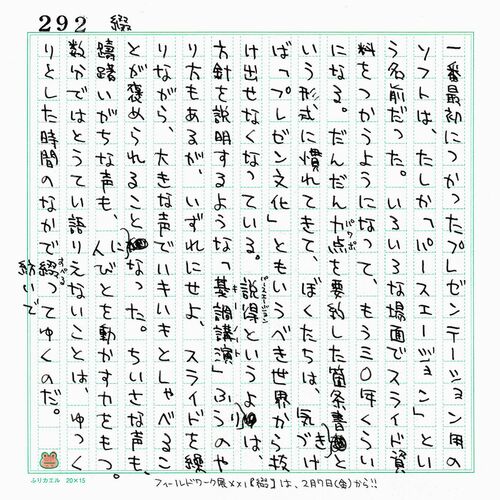 292 綴
一番最初につかったプレゼンテーション用の
ソフトは、たしか「パースエージョン」とい
う名前だった。いろいろな場面でスライド資
料をつかうようになって、もう三〇年くらい
になる。だんだん力点を要約した箇条書きと
いう形式に慣れてきて、ぼくたちは、気づけ
ば「プレゼン文化」ともいうべき世界から抜
け出せなくなっている。説得というよりは、
方針を説明するような「基調講演」ふうのや
り方もあるが、いずれにせよ、スライドを繰
りながら、大きな声でいきいきとしゃべるこ
とが褒められることになった。ちいさな声も、
躊躇いがちな声も、人びとを動かす力をもつ。
数分ではとうてい語りえないことは、ゆっく
りとした時間のなかで綴ってゆくのだ。
紡いで
ふりカエル 20×15
フィールドワーク展XXI『綴』は、2月7日(金)から!!